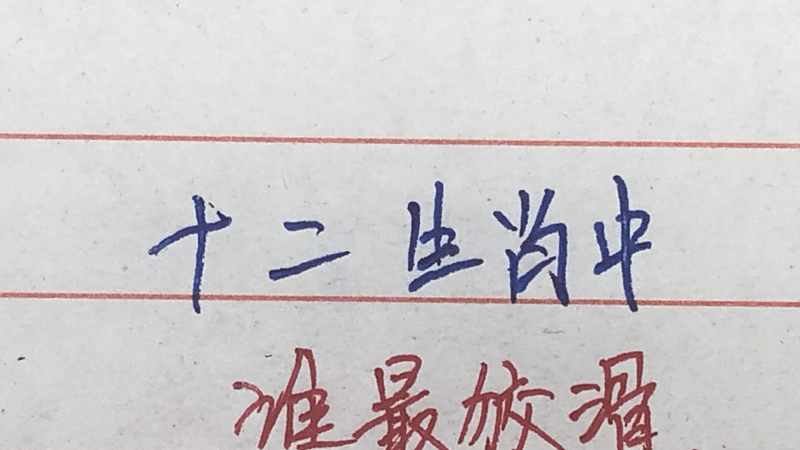 十二生肖中
谁最狡滑